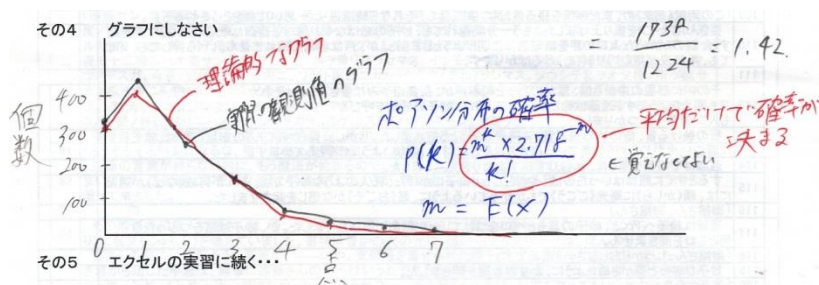 その4 グラフにしなさい
= 1738 / 1224 = 1.42
理論的なグラフ
実際の観測値のグラフ
個数
400
300
200
100
0 1 2 3 4 5 6 7
ポアソン分布の確率
P(k) = m^k × 2.718^-m / k!
平均だけで確率が決まる
∈覚えなくてよい
m = E(x)
その5 エクセルの実習に続く・・・